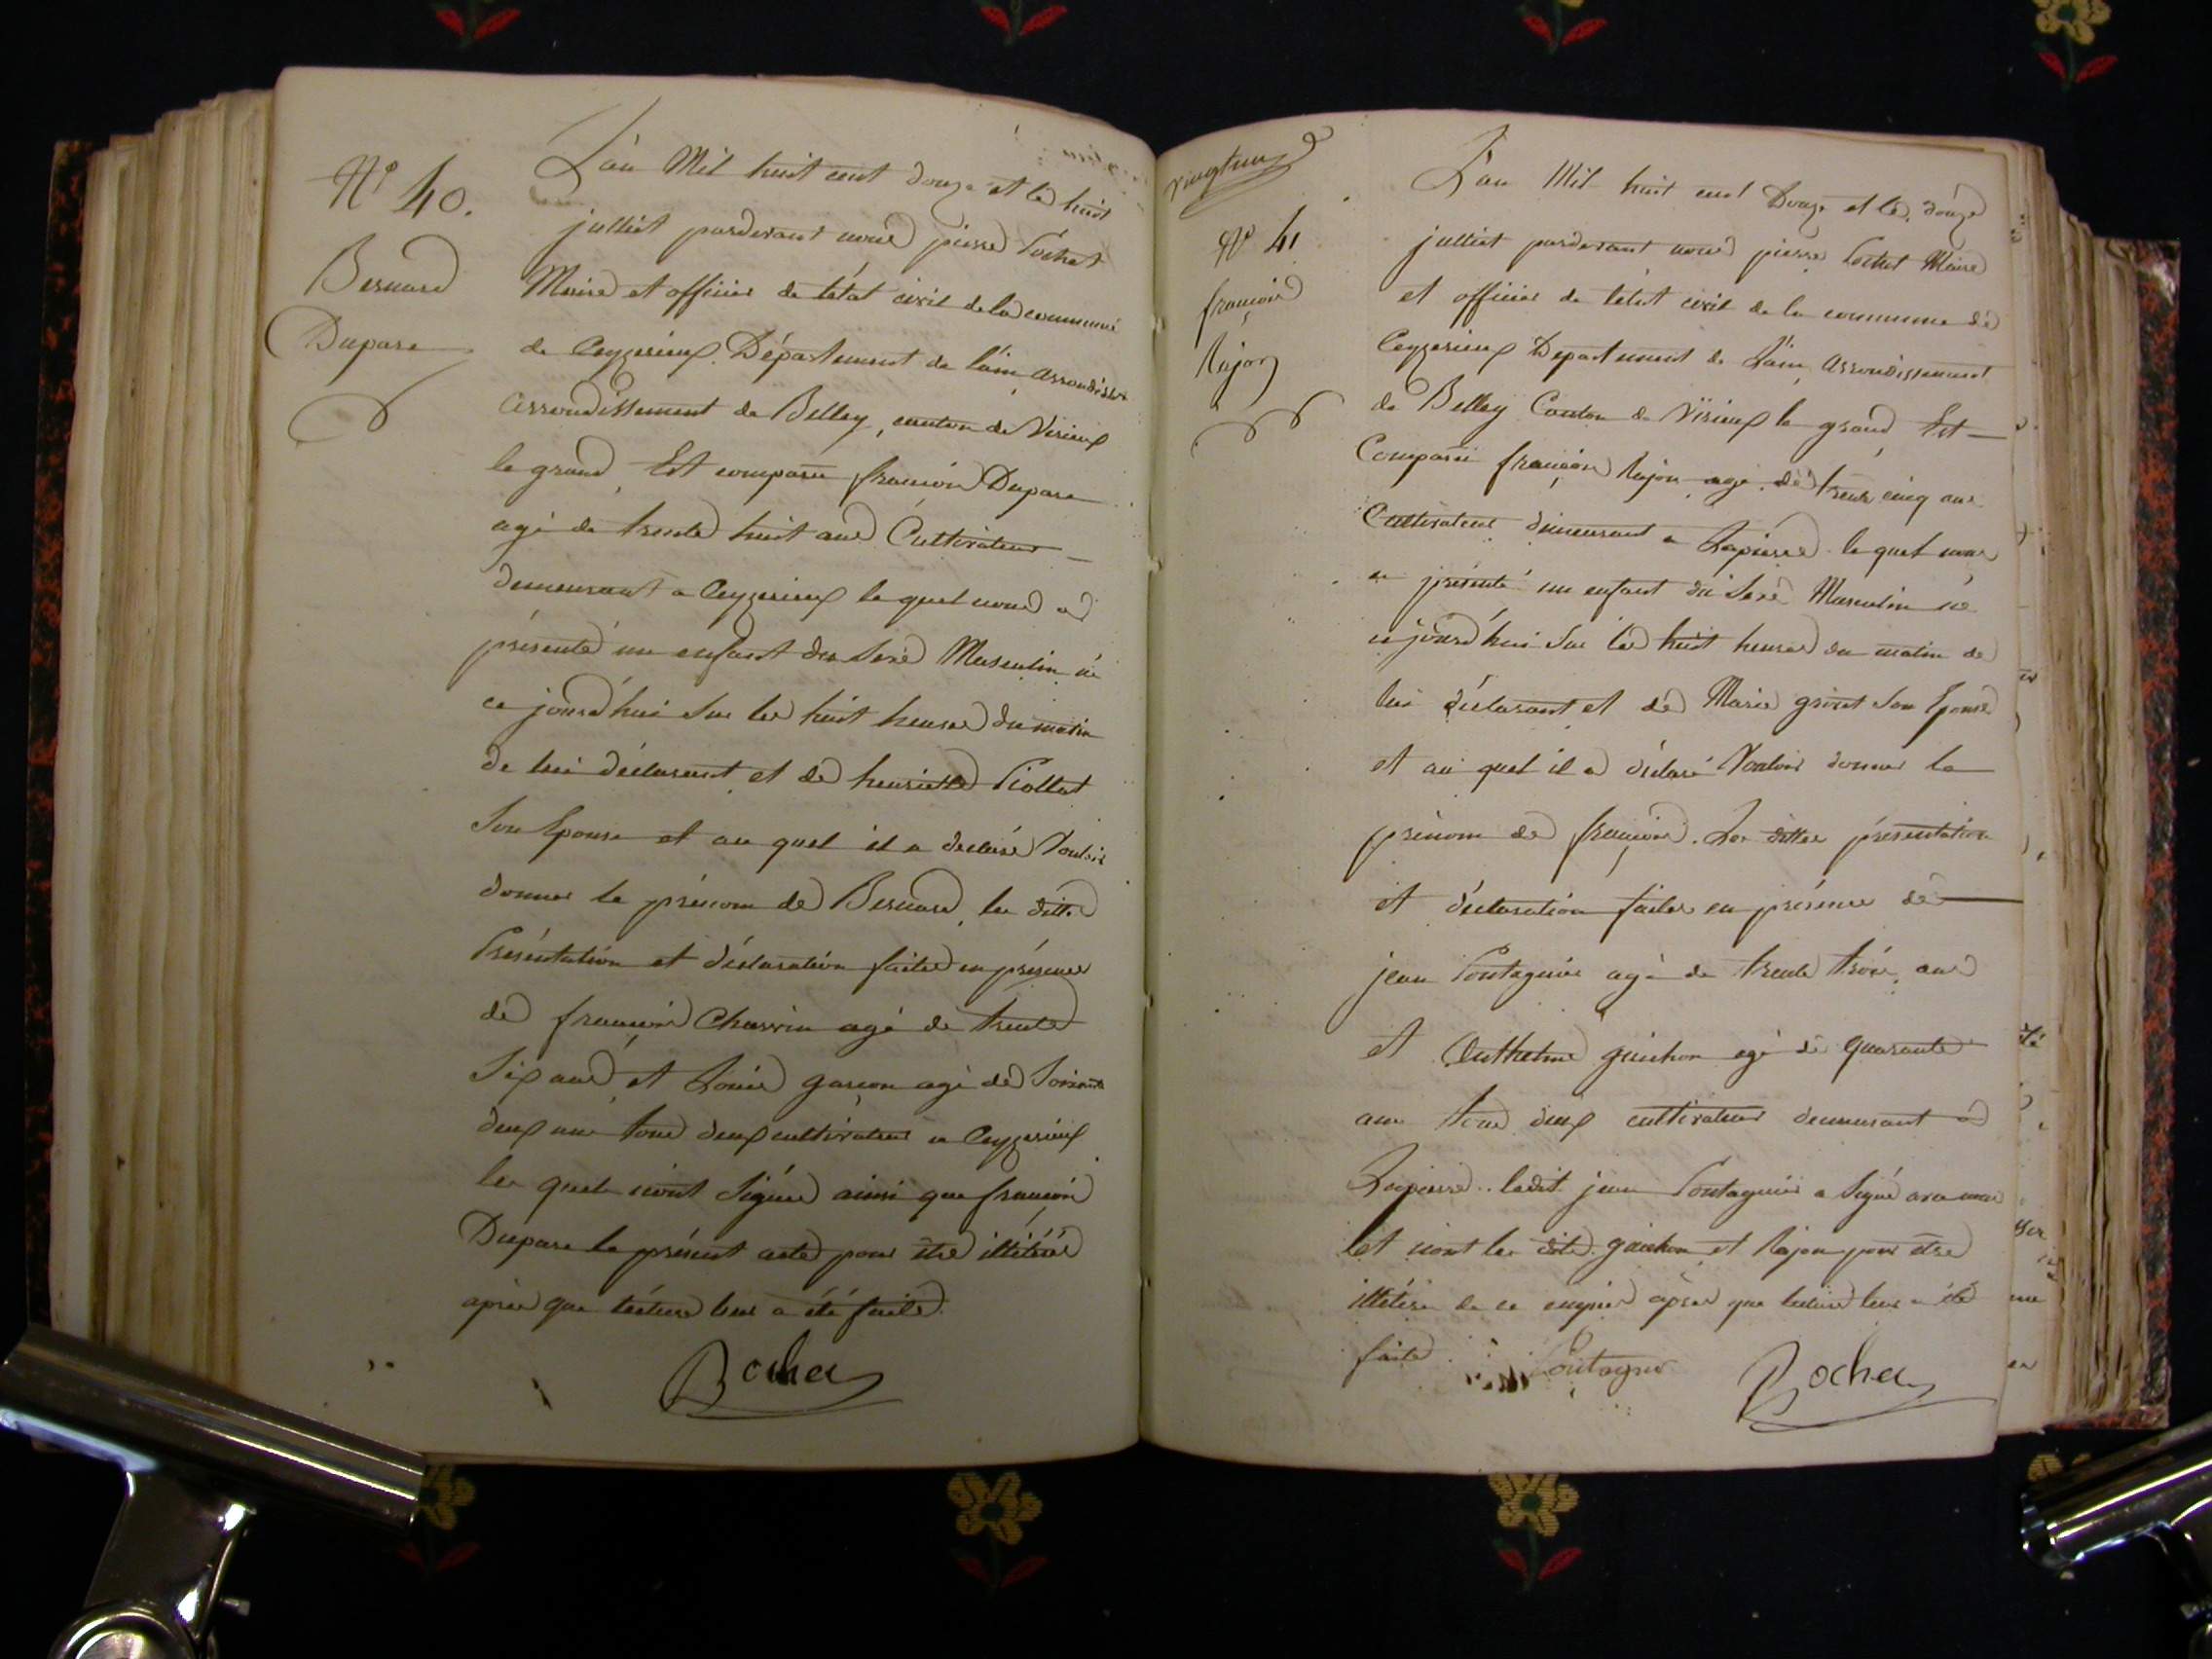 N° 40.
Bernard
Dupare
L'an Mil huit cent douze et le huit
julliet pardevant nous pierre Pochet
Maire et officier de l'état civil de la commune
de Ceyzerieux Département de l'ain arrondisst
arrondissement de Belley, canton de Virieux
le grand, Est comparu françois Dupare
agé de trente huit ans Cultivateur
demeurant a Ceyzerieux le quel nous a
présenté un enfant du Sexe Masculin né
ce jourd'hui Sur les huit heures du matin
de lui déclarant et de henriette Piollat
Son Epouse et au quel il a déclaré Vouloir
donner le prénom de Bernard, les dittes
Présentation et déclaration faites en présence
de françois Charvin agé de trente
Six ans et Louis garcon agé de Soixante
deux ans tous deux cultivateurs a Ceyzerieux
les quels n'ont Signés ainsi que françois
Dupare le présent acte pour être illitérés
après que lecture leur a été faite.
Rochex
vingtun
N° 41
françois
Rujon
L'an Mil huit cent Douze et le douze
julliet pardevant nous pierre Pochet Maire
et officier de l'état civil de la commune de
Ceyzerieux Departement de L'ain, arrondissement
de Belley Canton de Virieux le grand Est
Comparu françois Rujon agé de trente cinq ans
Cultivateur demeurant a Lapierre le quel nous
a présenté un enfant du Sexe Masculin né
ce jourd'hui Sur les huit heures du matin de
lui déclarant et de Marie Son Epouse
et au quel il a déclaré Vouloir donner le
prénom de françois. Les dittes présentation
et déclaration faites en présence de
jean Poutagnier agé de trente trois ans
et Anthelme guichon agé de quarante
ans tous deux cultivateurs demeurant a
Lapierre. ledit jean Poutagnier a Signé avec nous
et n'ont les dits guichon et Rujon pour etre
illitéré de ce enquier après que lecture leur a été
faite.
Poutagnier Rochex